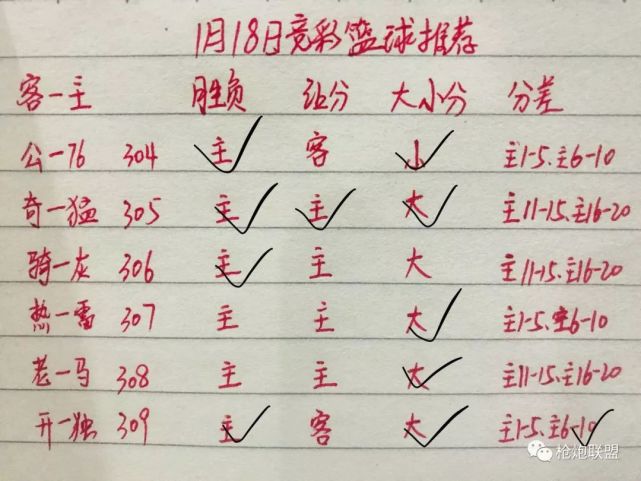 1月18日竞彩篮球推荐
客一主 胜负 让分 大小分 分差
公一76 304 主 客 小 主1-5、主6-10
奇一猛 305 主 主 大 主11-15、主16-20
骑一灰 306 主 主 大 主11-15、主16-20
热一雷 307 主 主 大 主1-5、主6-10
老一马 308 主 主 大 主11-15、主16-20
开一独 309 主 客 大 主1-5、主6-10
枪炮联盟